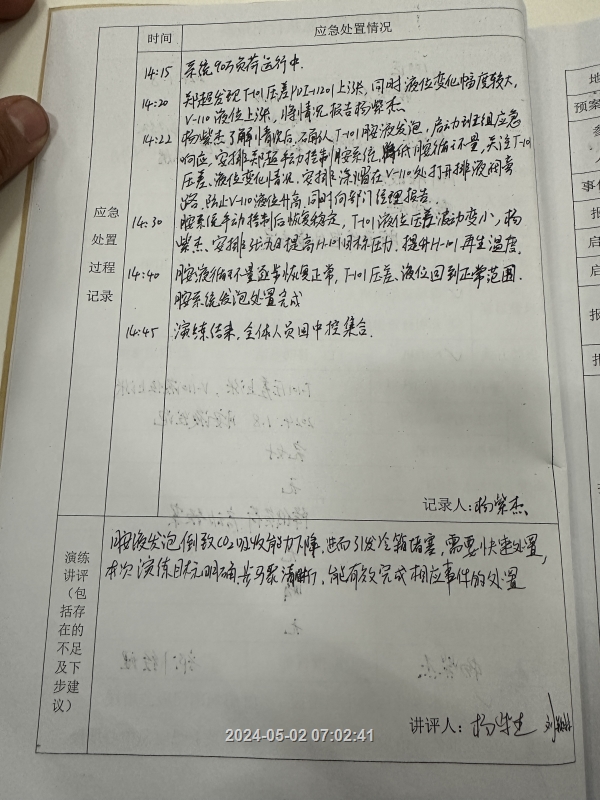 时间
应急处置情况
应急
处置
过程
记录
14:15 系统90万负荷运行中.
14:20 郑超发现T-101压差PDI-11201上涨,同时液位变化幅度较大,
V-110液位上涨,将情况报告杨紫杰.
14:22 杨紫杰了解情况后,确认T-101胺液发泡,启动班组应急
响应,安排郑超手动控制胺系统,降低胺循环量,关注T-101
压差、液位变化情况,安排涂 在V-110处打开排液阀
,防止V-110液位升高,同时向部门经理报告.
14:30 胺系统手动控制后恢复稳定,T-101液位压差波动变小,杨
紫杰安排 提高H-101目标压力,提升H-101再生温度.
14:40 胺液循环量逐步恢复正常,T-101压差、液位回到正常范围.
胺系统发泡处置完成
14:45 演练结束,全体人员回中控集合.
记录人:杨紫杰
演练
讲评
(包
括存
在的
不足
及下
步建
议)
胺液发泡倒致CO2吸收能力下降,进而引发冷箱堵塞,需要快速处置,
本次演练目标明确,步骤清晰,能有效完成相应事件的处置
讲评人:杨
2024-05-02 07:02:41
地
预案
参
人
事件
报
启
启
报
报